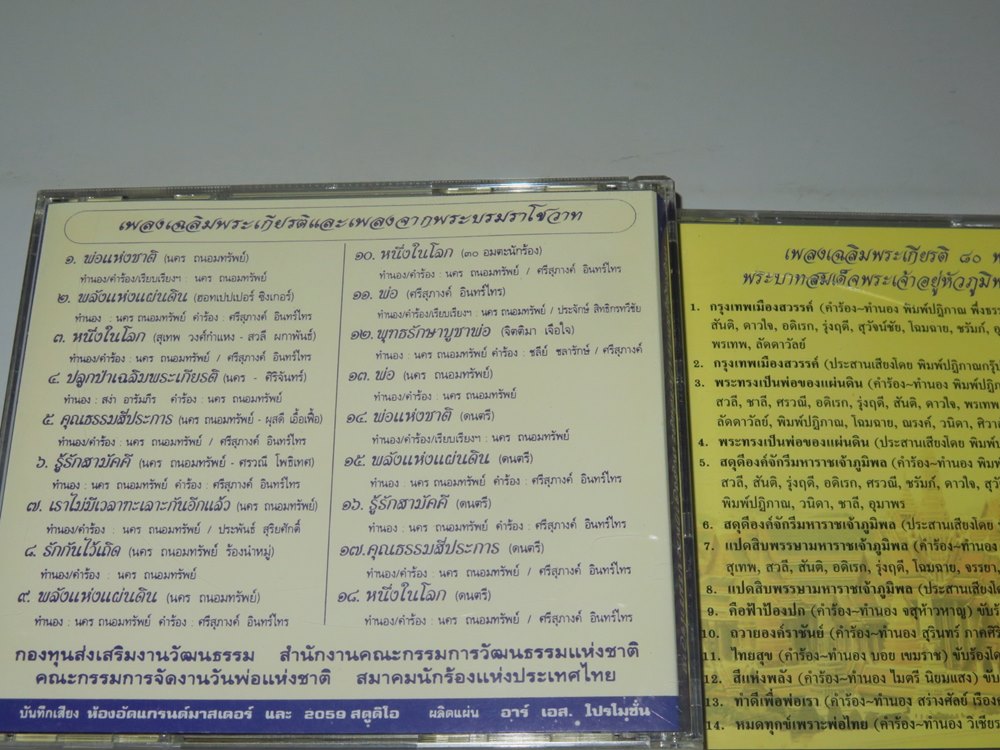 เพลงเฉลิมพระเกียรติและเพลงจากพระบรมราโชวาท
๑. พ่อแห่งชาติ (นคร ถนอมทรัพย์)
ทำนอง/คำร้อง/เรียบเรียงฯ : นคร ถนอมทรัพย์
๒. พลังแห่งแผ่นดิน (ฮอทเปปเปอร์ ซิงเกอร์)
ทำนอง : นคร ถนอมทรัพย์ คำร้อง : ศรีสุภางค์ อินทร์ไทร
๓. หนึ่งในโลก (สุเทพ วงศ์กำแหง - สวลี ผกาพันธ์)
ทำนอง/คำร้อง : นคร ถนอมทรัพย์ / ศรีสุภางค์ อินทร์ไทร
๔. ปลูกป่าเฉลิมพระเกียรติ (นคร - ศิริจันทร์)
ทำนอง : สง่า อารัมภีร คำร้อง : นคร ถนอมทรัพย์
๕. คุณธรรมสี่ประการ (นคร ถนอมทรัพย์ - ผุสดี เอื้อเฟื้อ)
ทำนอง/คำร้อง : นคร ถนอมทรัพย์ / ศรีสุภางค์ อินทร์ไทร
๖. รู้รักสามัคคี (นคร ถนอมทรัพย์ - ศรวณี โพธิเทศ)
ทำนอง : นคร ถนอมทรัพย์ คำร้อง : ศรีสุภางค์ อินทร์ไทร
๗. เราไม่มีเวลาทะเลาะกันอีกแล้ว (นคร ถนอมทรัพย์)
ทำนอง/คำร้อง : นคร ถนอมทรัพย์ / ประพันธ์ สุริยศักดิ์
๘. รักกันไว้เถิด (นคร ถนอมทรัพย์ ร้องนำหมู่)
ทำนอง/คำร้อง : นคร ถนอมทรัพย์
๙. พลังแห่งแผ่นดิน (นคร ถนอมทรัพย์)
ทำนอง : นคร ถนอมทรัพย์ คำร้อง : ศรีสุภางค์ อินทร์ไทร
๑๐. หนึ่งในโลก (๓๐ อมตะนักร้อง)
ทำนอง/คำร้อง : นคร ถนอมทรัพย์ / ศรีสุภางค์ อินทร์ไทร
๑๑. พ่อ (ศรีสุภางค์ อินทร์ไทร)
ทำนอง/คำร้อง/เรียบเรียงฯ : นคร ถนอมทรัพย์ / ประจักษ์ สิทธิกรทวีชัย
๑๒. พุทธรักษาบูชาพ่อ (จิตติมา เจือใจ)
ทำนอง : นคร ถนอมทรัพย์ คำร้อง : ชลีย์ ชลารักษ์ / ศรีสุภางค์
๑๓. พ่อ (นคร ถนอมทรัพย์)
ทำนอง/คำร้อง : นคร ถนอมทรัพย์
๑๔. พ่อแห่งชาติ (ดนตรี)
ทำนอง/คำร้อง/เรียบเรียงฯ : นคร ถนอมทรัพย์
๑๕. พลังแห่งแผ่นดิน (ดนตรี)
ทำนอง : นคร ถนอมทรัพย์ คำร้อง : ศรีสุภางค์ อินทร์ไทร
๑๖. รู้รักสามัคคี (ดนตรี)
ทำนอง : นคร ถนอมทรัพย์ คำร้อง : ศรีสุภางค์ อินทร์ไทร
๑๗. คุณธรรมสี่ประการ (ดนตรี)
ทำนอง/คำร้อง : นคร ถนอมทรัพย์ / ศรีสุภางค์ อินทร์ไทร
๑๘. หนึ่งในโลก (ดนตรี)
ทำนอง/คำร้อง : นคร ถนอมทรัพย์ / ศรีสุภางค์ อินทร์ไทร
กองทุนส่งเสริมงานวัฒนธรรม สำนักงานคณะกรรมการวัฒนธรรมแห่งชาติ
คณะกรรมการจัดงานวันพ่อแห่งชาติ สมาคมนักร้องแห่งประเทศไทย
บันทึกเสียง ห้องอัดแกรนด์มาสเตอร์ และ 2059 สตูดิโอ ผลิตแผ่น อาร์ เอส. โปรโมชั่น
เพลงเฉลิมพระเกียรติ ๘๐
พระบาทสมเด็จพระเจ้าอยู่หัวภูมิพ
1. กรุงเทพเมืองสวรรค์ (คำร้อง~ทำนอง พิมพ์ปฏิภาณ พึ่งธรร
สันติ, ดาวใจ, อดิเรก, รุ่งฤดี, สุวัจน์ชัย, โฉมฉาย, ชรัมภ์,
พรเทพ, ลัดดาวัลย์
2. กรุงเทพเมืองสวรรค์ (ประสานเสียงโดย พิมพ์ปฏิภาณกรุ๊ป
3. พระทรงเป็นพ่อของแผ่นดิน (คำร้อง~ทำนอง พิมพ์ปฏิภ
สวลี, ชาลี, ศรวณี, อดิเรก, รุ่งฤดี, สันติ, ดาวใจ, พรเทพ
ลัดดาวัลย์, พิมพ์ปฏิภาณ, โฉมฉาย, ณรงค์, วนิดา, ศิวา
4. พระทรงเป็นพ่อของแผ่นดิน (ประสานเสียงโดย พิมพ์
5. สดุดีองค์จักรีมหาราชเจ้าภูมิพล (คำร้อง~ทำนอง พิมพ์
สวลี, สันติ, รุ่งฤดี, อดิเรก, ศรวณี, ชรัมภ์, ดาวใจ, สุวั
พิมพ์ปฏิภาณ, วนิดา, ชาลี, อุมาพร
6. สดุดีองค์จักรีมหาราชเจ้าภูมิพล (ประสานเสียงโดย
7. แปดสิบพรรษามหาราชเจ้าภูมิพล (คำร้อง~ทำนอง
สุเทพ, สวลี, สันติ, อดิเรก, รุ่งฤดี, โฉมฉาย, จรรยา,
8. แปดสิบพรรษามหาราชเจ้าภูมิพล (ประสานเสียงโด
9. คือฟ้าป้องปก (คำร้อง~ทำนอง จสุห้าวหาญ) ขับร้
10. ถวายองค์ราชันย์ (คำร้อง~ทำนอง สุรินทร์ ภาคศิริ
11. ไทยสุข (คำร้อง~ทำนอง บอย เขมราช) ขับร้องโด
12. สีแห่งพลัง (คำร้อง~ทำนอง ไมตรี นิยมแสง) ขับ
13. ทำดีเพื่อพ่อเรา (คำร้อง~ทำนอง สร่างศัลย์ เรือง
14. หมดทุกข์เพราะพ่อไทย (คำร้อง~ทำนอง วิเชียร